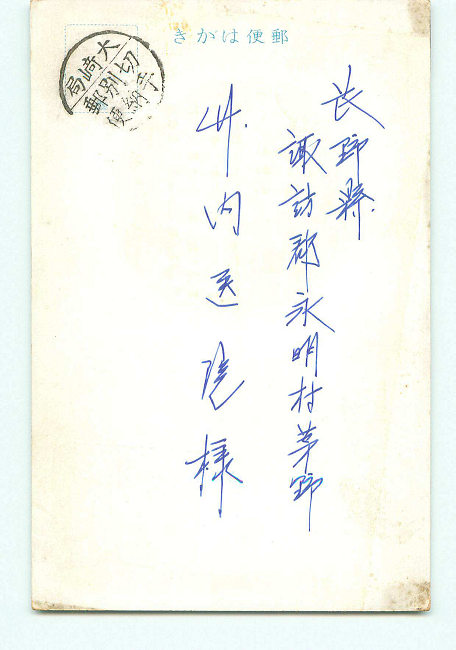 郵便はがき
大崎局
切手
別納
郵便
長野縣
諏訪郡永明村茅野
内医院様